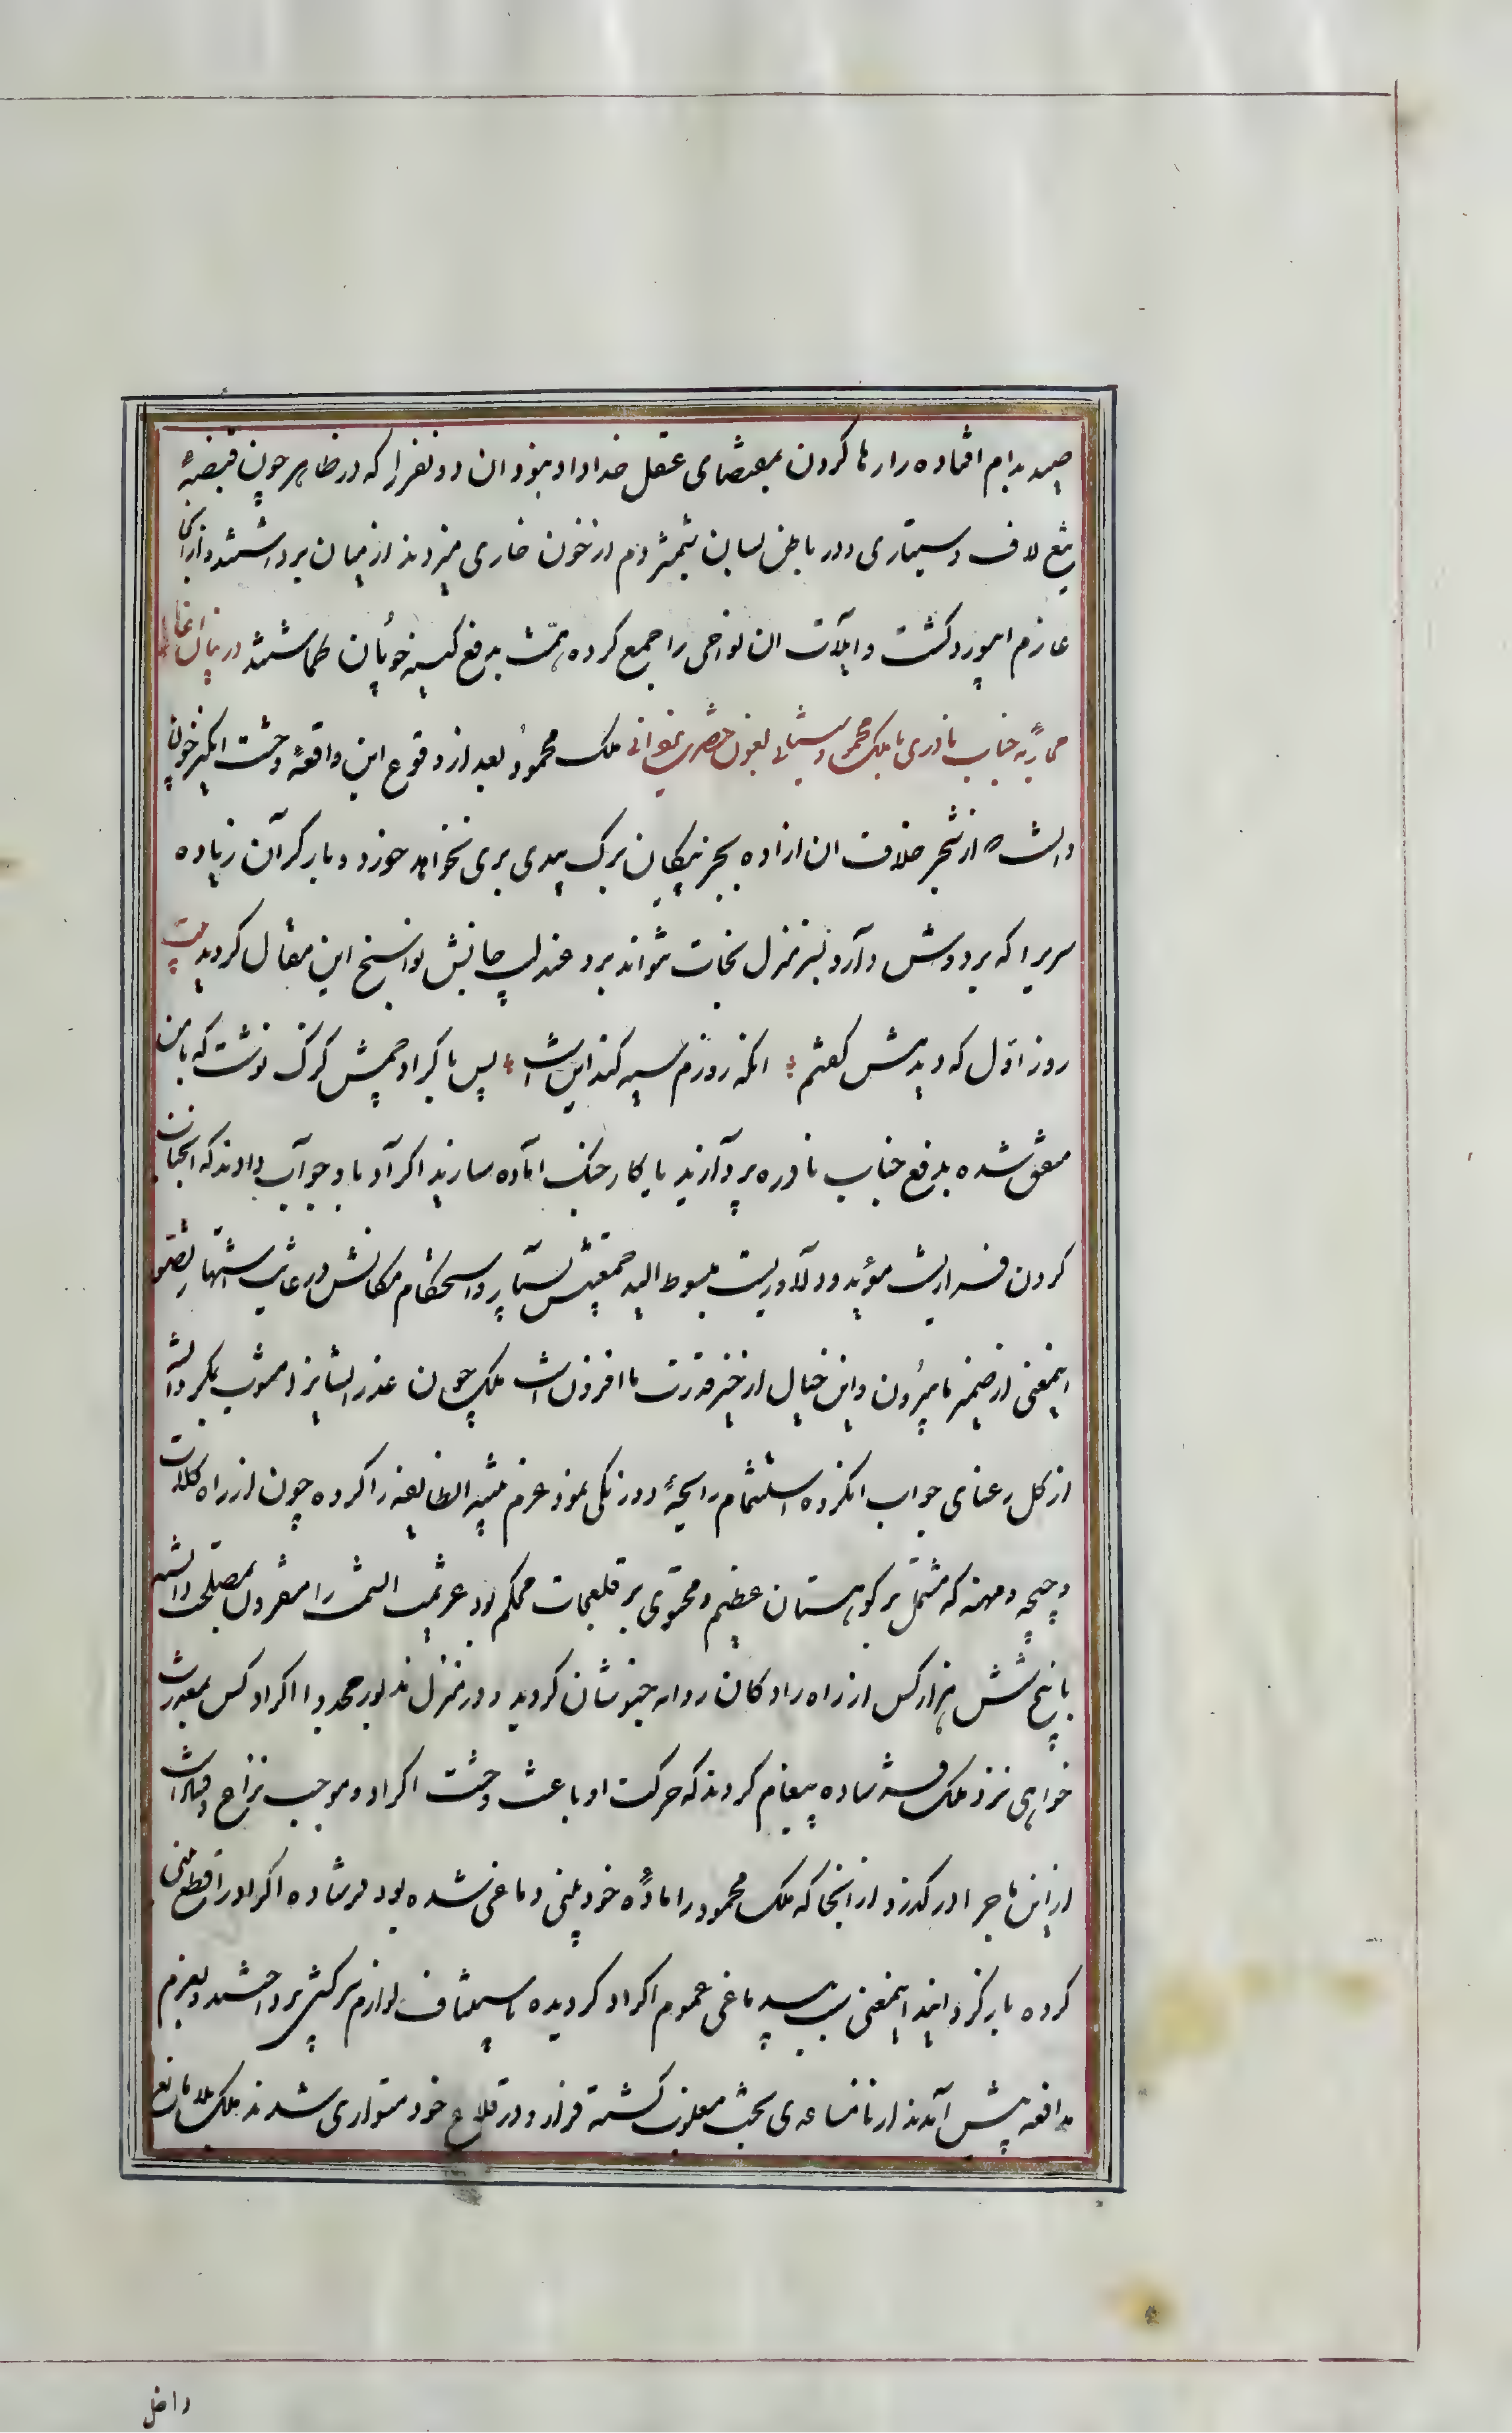 صید بدام افتاده را رها کردن بمقتضای عقل خداداد نبود ان دو نفر را که در ظاهر چون قبضهٔ
تیغ لاف دستیاری و در باطن بسان شمشیر دم از خون خاری میزدند از میان برداشتند و از آنجا
عازم ابیورد کشت و ایلات ان نواحی را جمع کرده همت بدفع کینه جویان کماشتند در بیان اغاز
محاربه جناب نادری با ملک محمود سیستانی بعون حضرت یزدانی ملک محمود بعد از وقوع این واقعهٔ وحشت انکیز چون
دانست که از شجر خلافت ان ازاده بجز پیکان برک بیدی بری نخواهد خورد و بار کران زیاده
سریرا که بر دوش دارد بسر منزل نجات نتواند برد عندلیب جانش نواسنج این مقال کردید بیت
روز اول که دیدمش کفتم انکه روزم سیه کند این است پس باکراد چمشکزک نوشت که با من
متفق شده بدفع جناب نادره پردازند یا بکار جنک اماده سازند اکراد باو جواب دادند که انجناب
کردن فرازیست مؤید و دلاوریست مبسوط الید حقیقتش بسیار و استحکام مکانش در غایت اشتهار تصور
اینمعنی از ضمیر ما بیرون و این خیال از حیز قدرت ما افزون است ملک چون عذر ایشانرا مشوب بمکر دانسته
از کل رعنای جواب انکروه استشمام رایحهٔ دورنکی نمود عزم تنبیه انطایفه را کرده چون از راه کلات
و چهچه و مهنه که مشتمل بر کوهستان عظیم و محتوی بر قلعجات محکم بود عزیمت السمت را مقرون بمصلحت ندانسته
با پنج شش هزار کس از راه رادکان روانه خبوشان کردید و در منزل مذبور مجددا اکراد کس بمعذرت
خواهی نزد ملک فرستاده پیغام کردند که حرکت او باعث وحشت اکراد و موجب نزاع و فساد است
از این ماجرا در کذرد از انجا که ملک محمود را مادهٔ خود بینی دماغی شده بود فرستاده اکراد را قطع بینی
کرده باز کردانید اینمعنی سبب بی دماغی عموم اکراد کردیده باستیناف لوازم سرکشی پرداختند و بعزم
مدافعه پیش آمدند از نامساعدی بخت مغلوب کشته فرار و در قلاع خود متواری شدند ملک بلا مانع
داخل